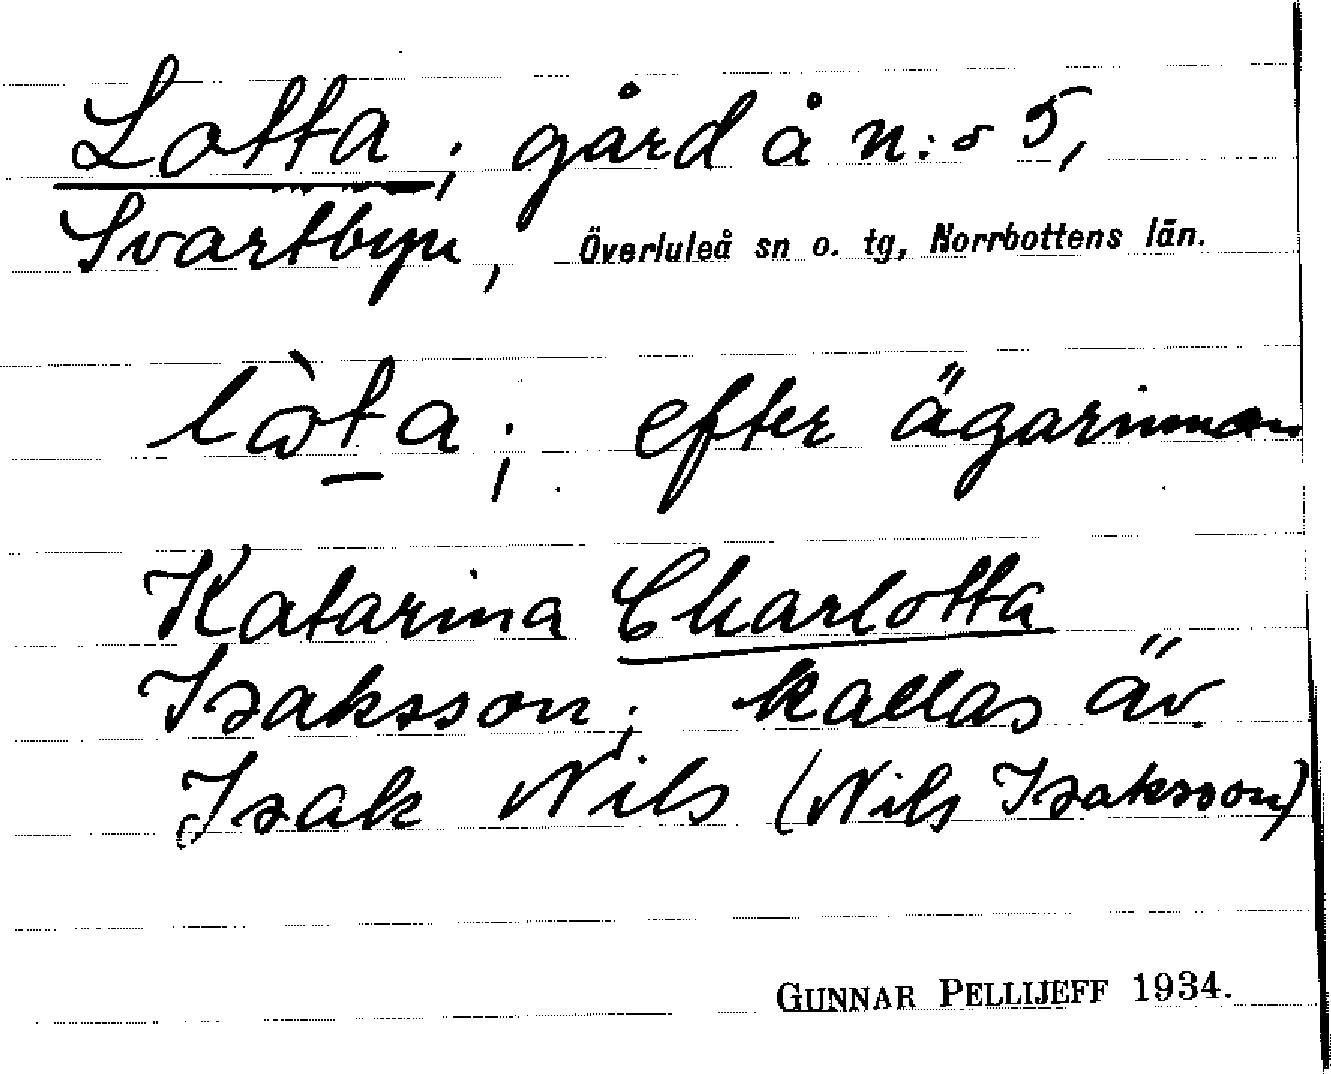 Lotta; gård å n:o 5,
Svartbyn, Överluleå sn o. tg, Norrbottens län.
; efter ägarinnan
Katarina Charlotta
Isaksson; kallas äv.
Isak Nils (Nils Isaksson)
GUNNAR PELLIJEFF 1934.